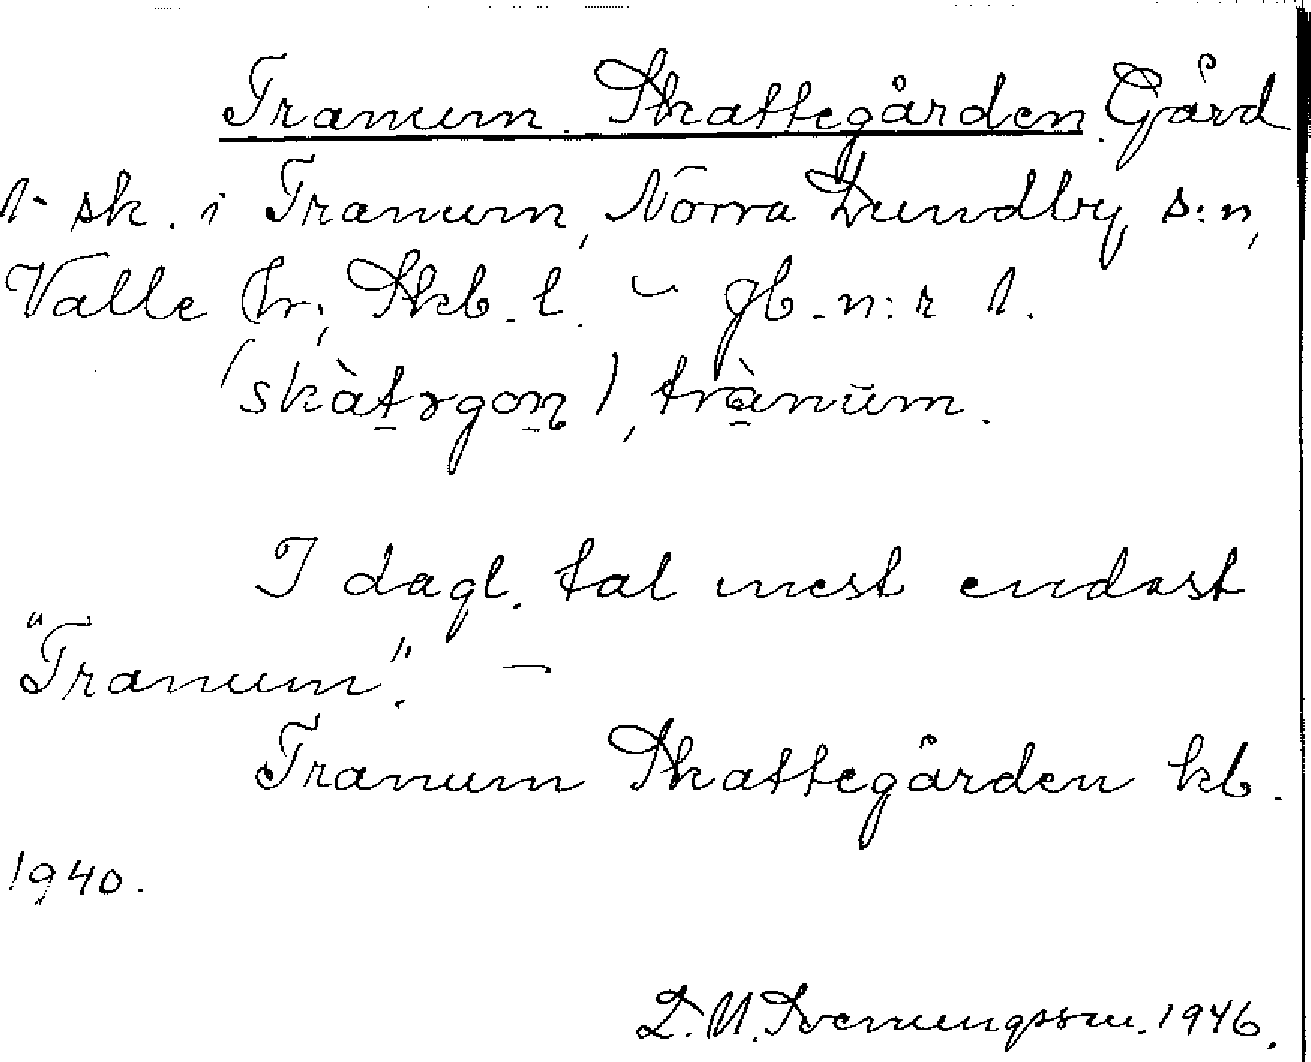 Tranum Skattegården. Gård
1 sk. i Tranum, Norra Lundby s:n,
Valle hr, Skb. l. – gb. n:r 1.
(skàtəgoɳ), trànūm.
I dagl. tal mest endast
"Tranum". –
Tranum Skattegården kb.
1940.
1946.